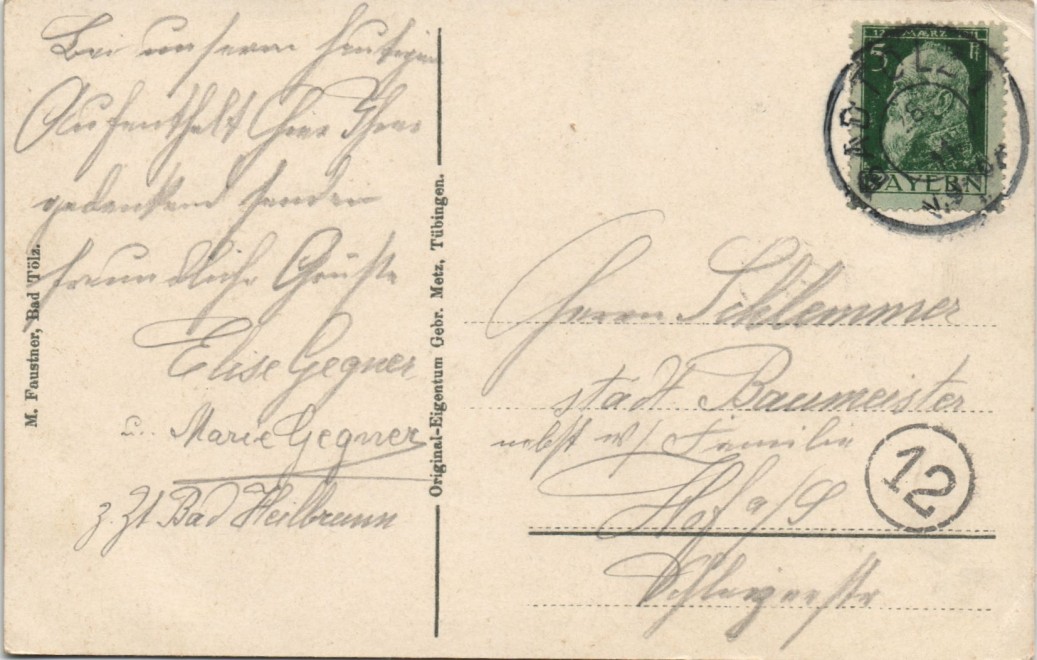 Bei unserm heutigen
Aufenthalt hier Ihrer
gedenkend senden
freundliche Grüße
Elise Gegner
u. Marie Gegner
z. Zt Bad Heilbrunn
M. Faustner, Bad Tölz.
Original-Eigentum Gebr. Metz, Tübingen.
5 12. MÆRZ 1911 Pf
BAYERN
BAD TÖLZ
Herrn Schlemmer
städt Baumeister
nebst w/ Familie
Hof a/S
12
Schleizerstr